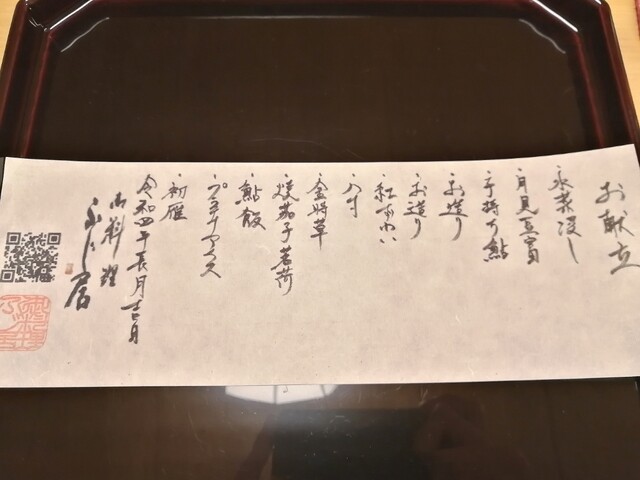 お献立
・氷菜浸し
・月見豆富
・子持ち鮎
・お造り
・お造り
・紅ずわい
・八寸
・金時草
・焼茄子茗荷
・鮎飯
・プラチナアイス
・初雁
令和四年長月吉日
御料理
居